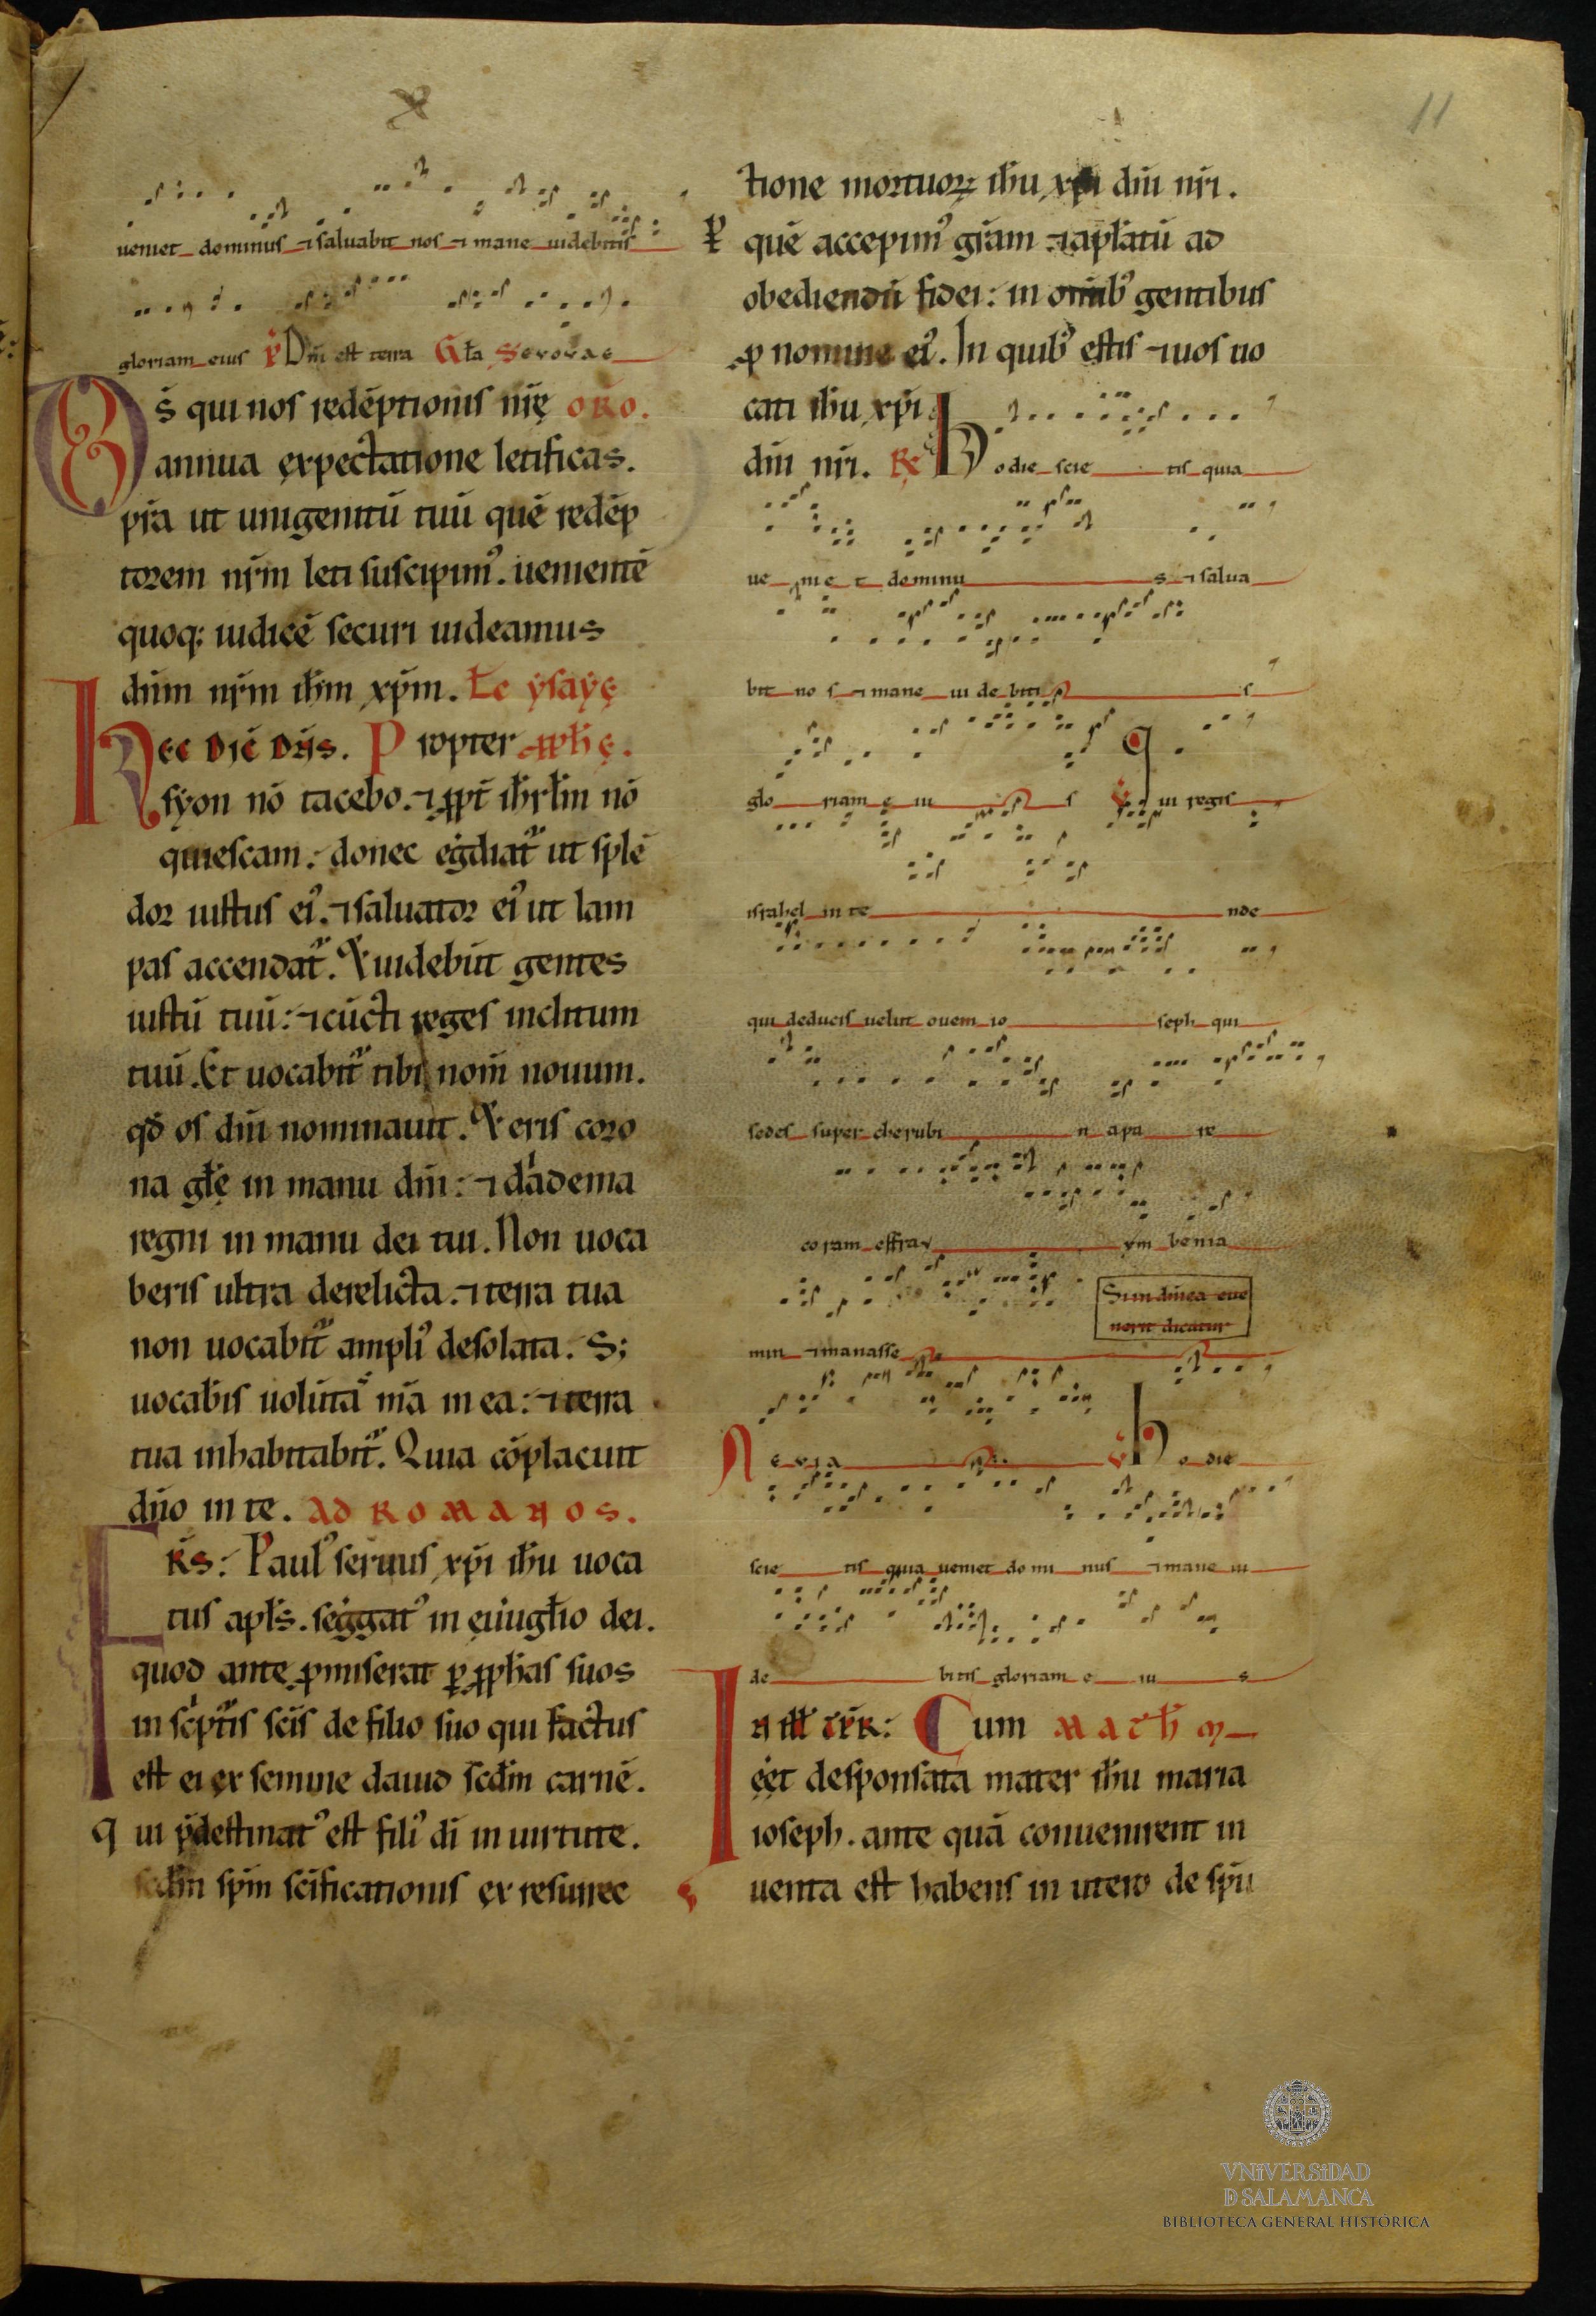 11
ueniet dominus ⁊ saluabit nos ⁊ mane uidebitis
gloriam eius Dñi est terra Gła Seuouae
DS̄ qui nos redēptionis nr̄ę oro.
annua expectatione letificas.
pr̄a ut unigenitū tuū quē redēp
torem nr̄m leti suscipim᾿. uenientē
quoq; iudicē securi uideamus
dn̄m nr̄m ih̄m xp̄m. Łc ẏsaẏę
Hec Dic̄ Dn̄s. Propter ꝓph̄ę.
sẏon nō tacebo. ⁊ ꝓpt̄ ih̄rłm nō
quiescam. donec eg̓diat᷑ ut splē
dor iustus ei᾿. ⁊ saluator ei᾿ ut lam
pas accendat᷑. Et uidebūt gentes
iustū tuū: ⁊ cūcti reges inclitum
tuū. Et uocabit᷑ tibi nom̄ nouum.
qđ os dn̄i nominauit. Et eris coro
na głę in manu dn̄i: ⁊ diadema
regni in manu dei tui. Non uoca
beris ultra derelicta. ⁊ terra tua
non uocabit᷑ ampli᾿ desolata. S;
uocab̄is uolūtā mā in ea: ⁊ terra
tua inhabitabit᷑. Quia cōplacuit
dn̄o in te. AD ROMANOS.
FR̄s: Paul᾿ seruus xp̄i ih̄u uoca
tus apłs. seg̓gat᾿ in euuāgłio dei.
quod ante ꝓmiserat ꝑ ꝓph̄as suos
in sc̓pt᷑is sc̄is de filio suo qui factus
est ei ex semine dauid scđm carnē.
qui p̄destinat᾿ est fili᾿ dī in uirtute.
scđm sp̄m sc̄ificationis ex resurrec
tione mortuoꝝ ih̄u xp̄i dn̄i nr̄i.
ꝑ quē accepim᾿ gr̄am ⁊ apłatū ad
obediendū fidei: in om̄ib᾿ gentibus
ꝓ nomine ei᾿. In quib᾿ estis ⁊ uos uo
cati ih̄u xp̄i
dn̄i nr̄i. R̄ Hodie scie tis quia
ue nie t dominu s ⁊ salua
bit no s ⁊ mane ui de biti s
glo riam e iu s V̄ Qui regis
israhel in te nde
qui deducis uelut ouem io seph qui
sedes super cherubi n apa re
coram effray ym benia
Si in dn̄ica eue
nerit dicatur
min ⁊ manasse
Aeuia V̄ Hodie
scie tis quia ueniet do mi nus ⁊ mane ui
de bitis gloriam e iu s
IN iłł tp̄r: Cum MATH̄M
eēt desponsata mater ih̄u maria
ioseph. ante quā conuenirent in
uenta est habens in utero de sp̄u
VNiVERSiDAD
D SALAMANCA
BIBLIOTECA GENERAL HISTÓRICA